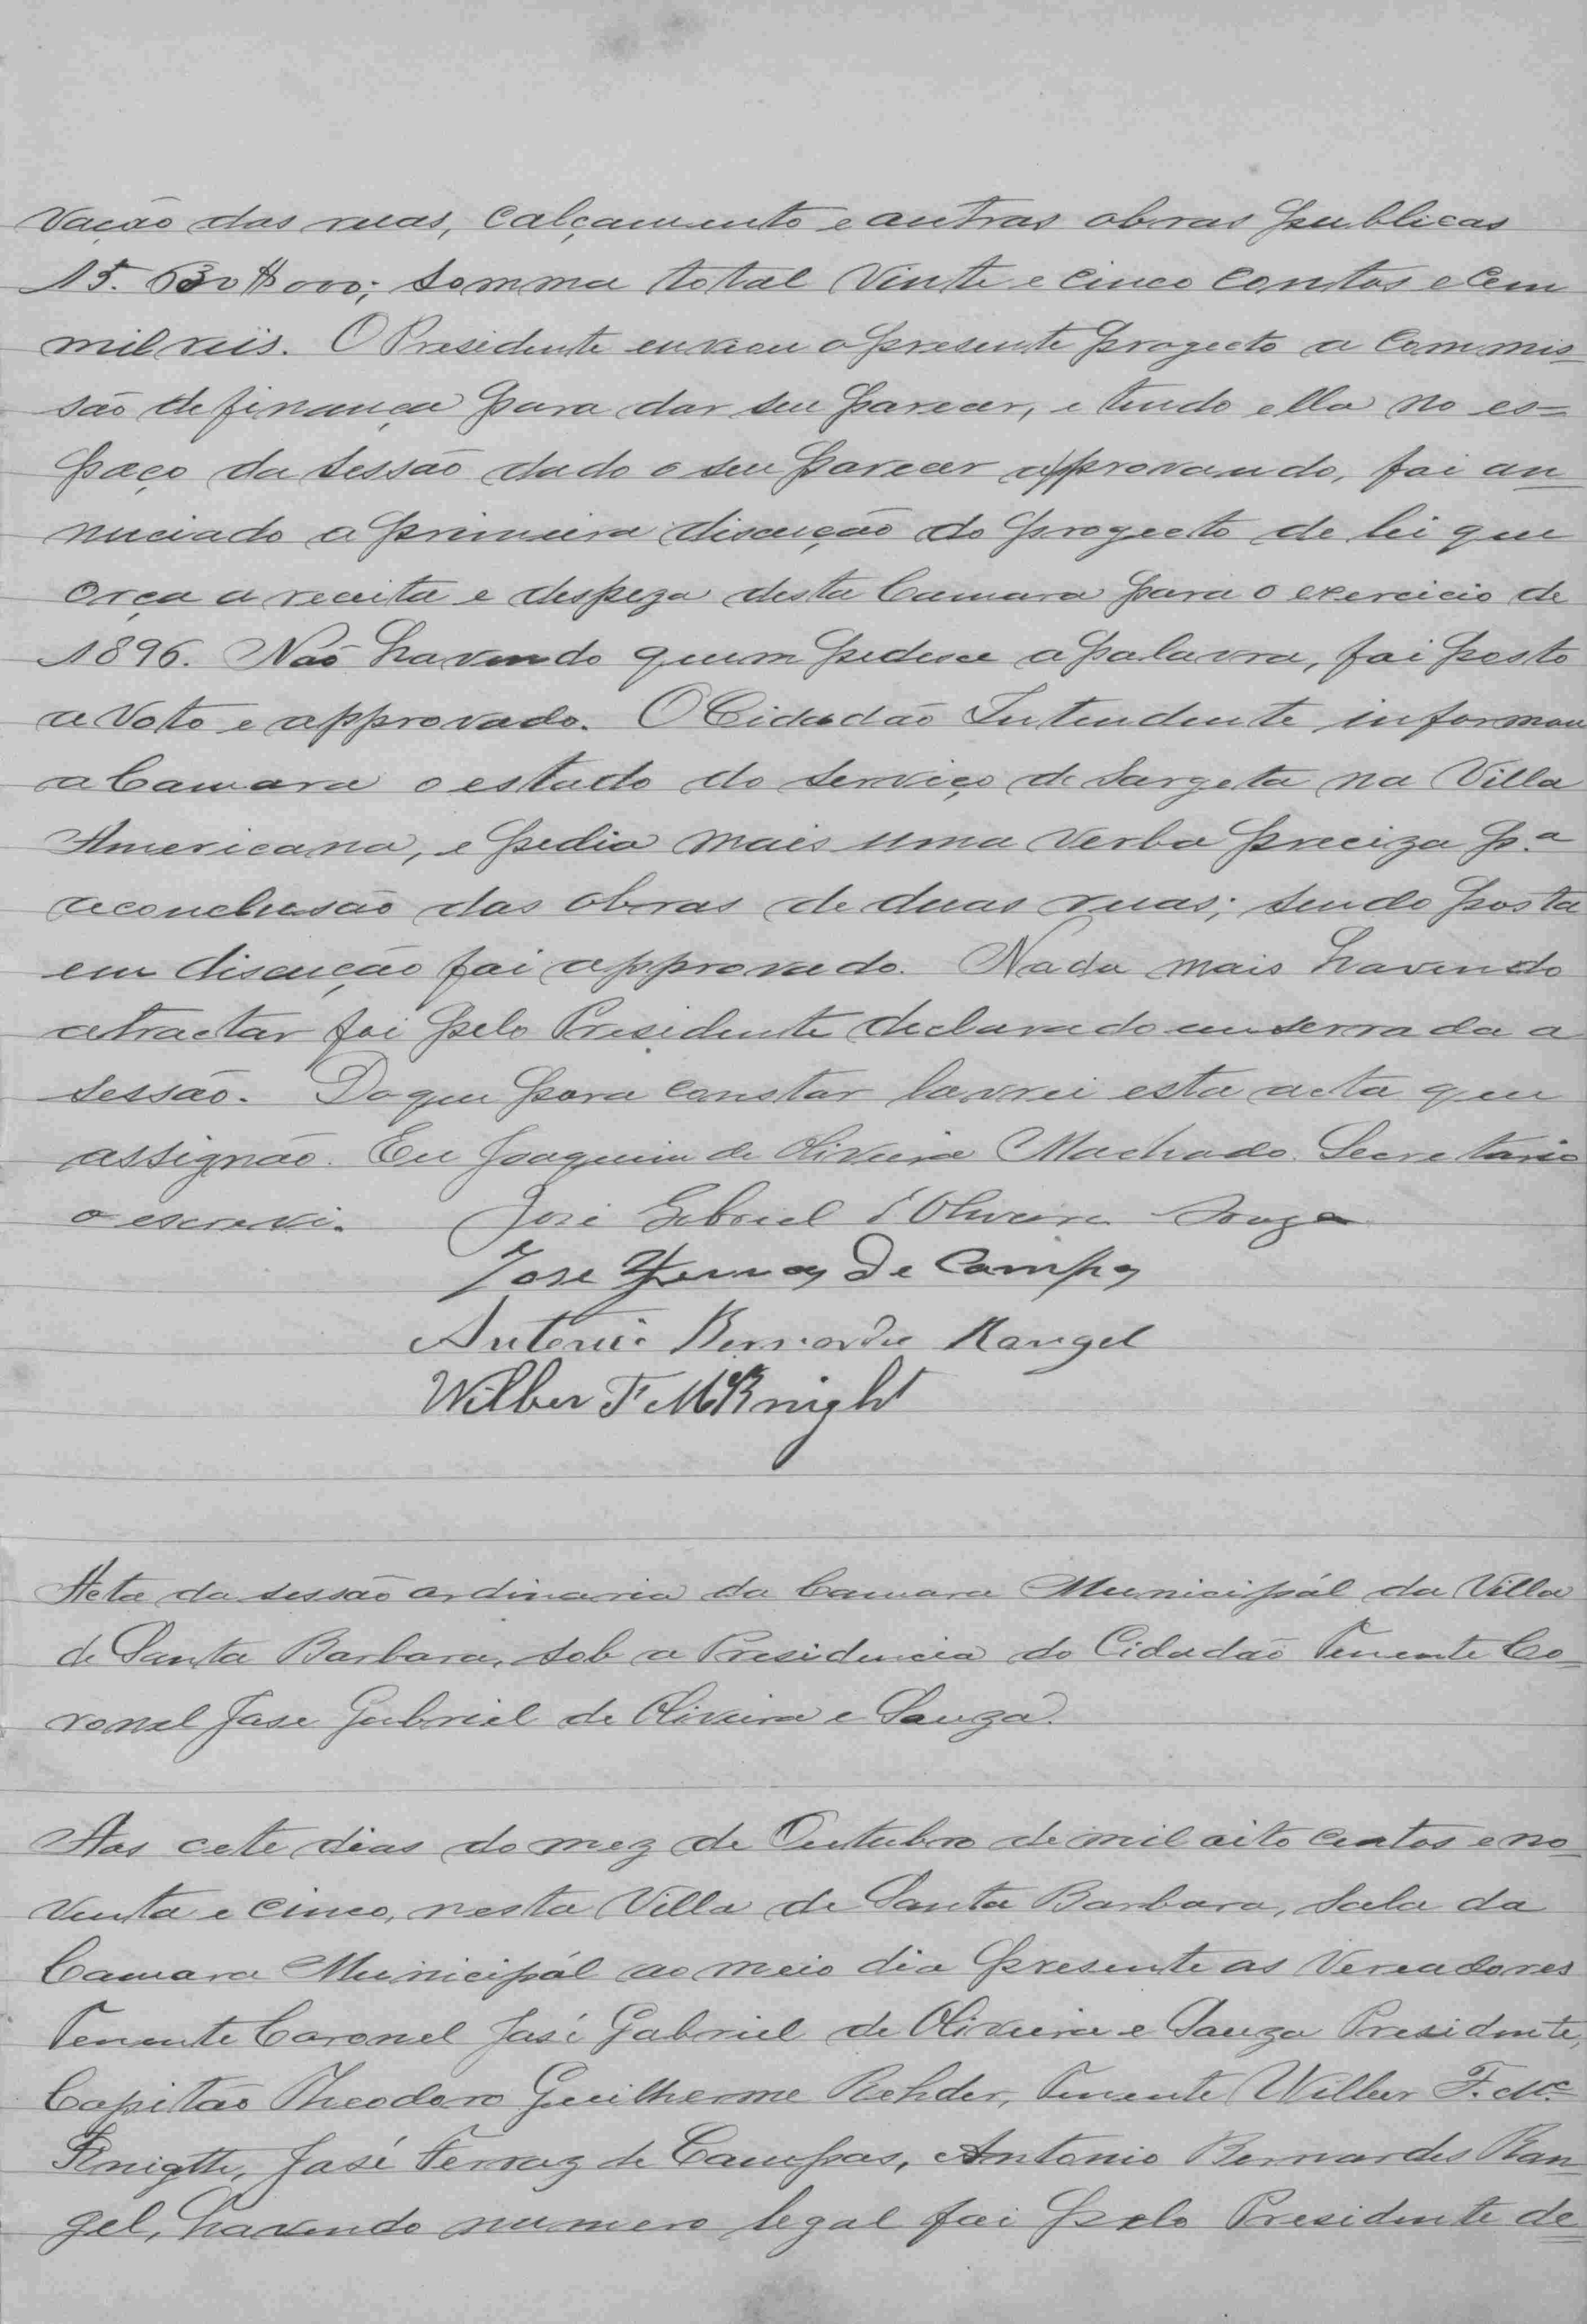 vação das ruas, calçamento e outras obras publicas
15.630$000; somma total vinte e cinco contos e cem
mil reis. O Presidente enviou o presente progecto a Commis=
são de finança para dar seu parecer, e tendo ella no es=
paço da sessão dado o seu parecer approvando, foi an=
nuciado a primeira discução do progecto de lei que
orça a receita e despeza desta Camara para o exercicio de
1896. Não havendo quem pedisce a palavra, foi posto
a voto e approvado. O Cidadão Intendente informou
a Camara o estado do serviço de sargeta na Villa
Americana, e pedia mais uma verba preciza p.a
a conclusão das obras de duas ruas; sendo posta
em discução foi approvado. Nada mais havendo
a tractar foi pelo Presidente declarado enserrada a
sessão. Do que para constar lavrei esta acta que
assignão. Eu Joaquim de Oliveira Machado Secretario
o escrevi. José Gabriel d'Oliveira Souza
Jose Ferraz de Campos
Antonio Bernardes Rangel
Wilber F McKnight
Acta da sessão ordinaria da Camara Municipál da Villa
de Santa Barbara, sob a Presidencia do Cidadão Tenente Co=
ronel Jose Gabriel de Oliveira e Souza.
Aos cete dias do mez de Outubro de mil oito centos e no=
venta e cinco, nesta Villa de Santa Barbara, sala da
Camara Municipál ao meio dia presente os Vereadores
Tenente Coronel José Gabriel de Oliveira e Souza Presidente,
Capitão Theodoro Guilherme Rehder, Tenente Wilber F. Mc
Knigth, José Ferraz de Campos, Antonio Bernardes Ran=
gel, havendo numero legal foi pelo Presidente de=